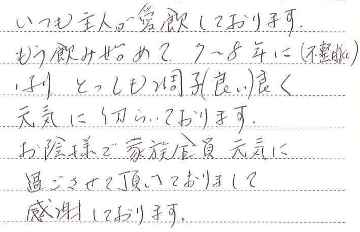 いつも主人が愛飲しております。
もう飲み始めて 7〜8年に(不整脈)
なり とっても調子(良い)良く
元気に 働らいております。
お陰様で家族全員 元気に
過ごさせて頂いておりまして
感謝しております。